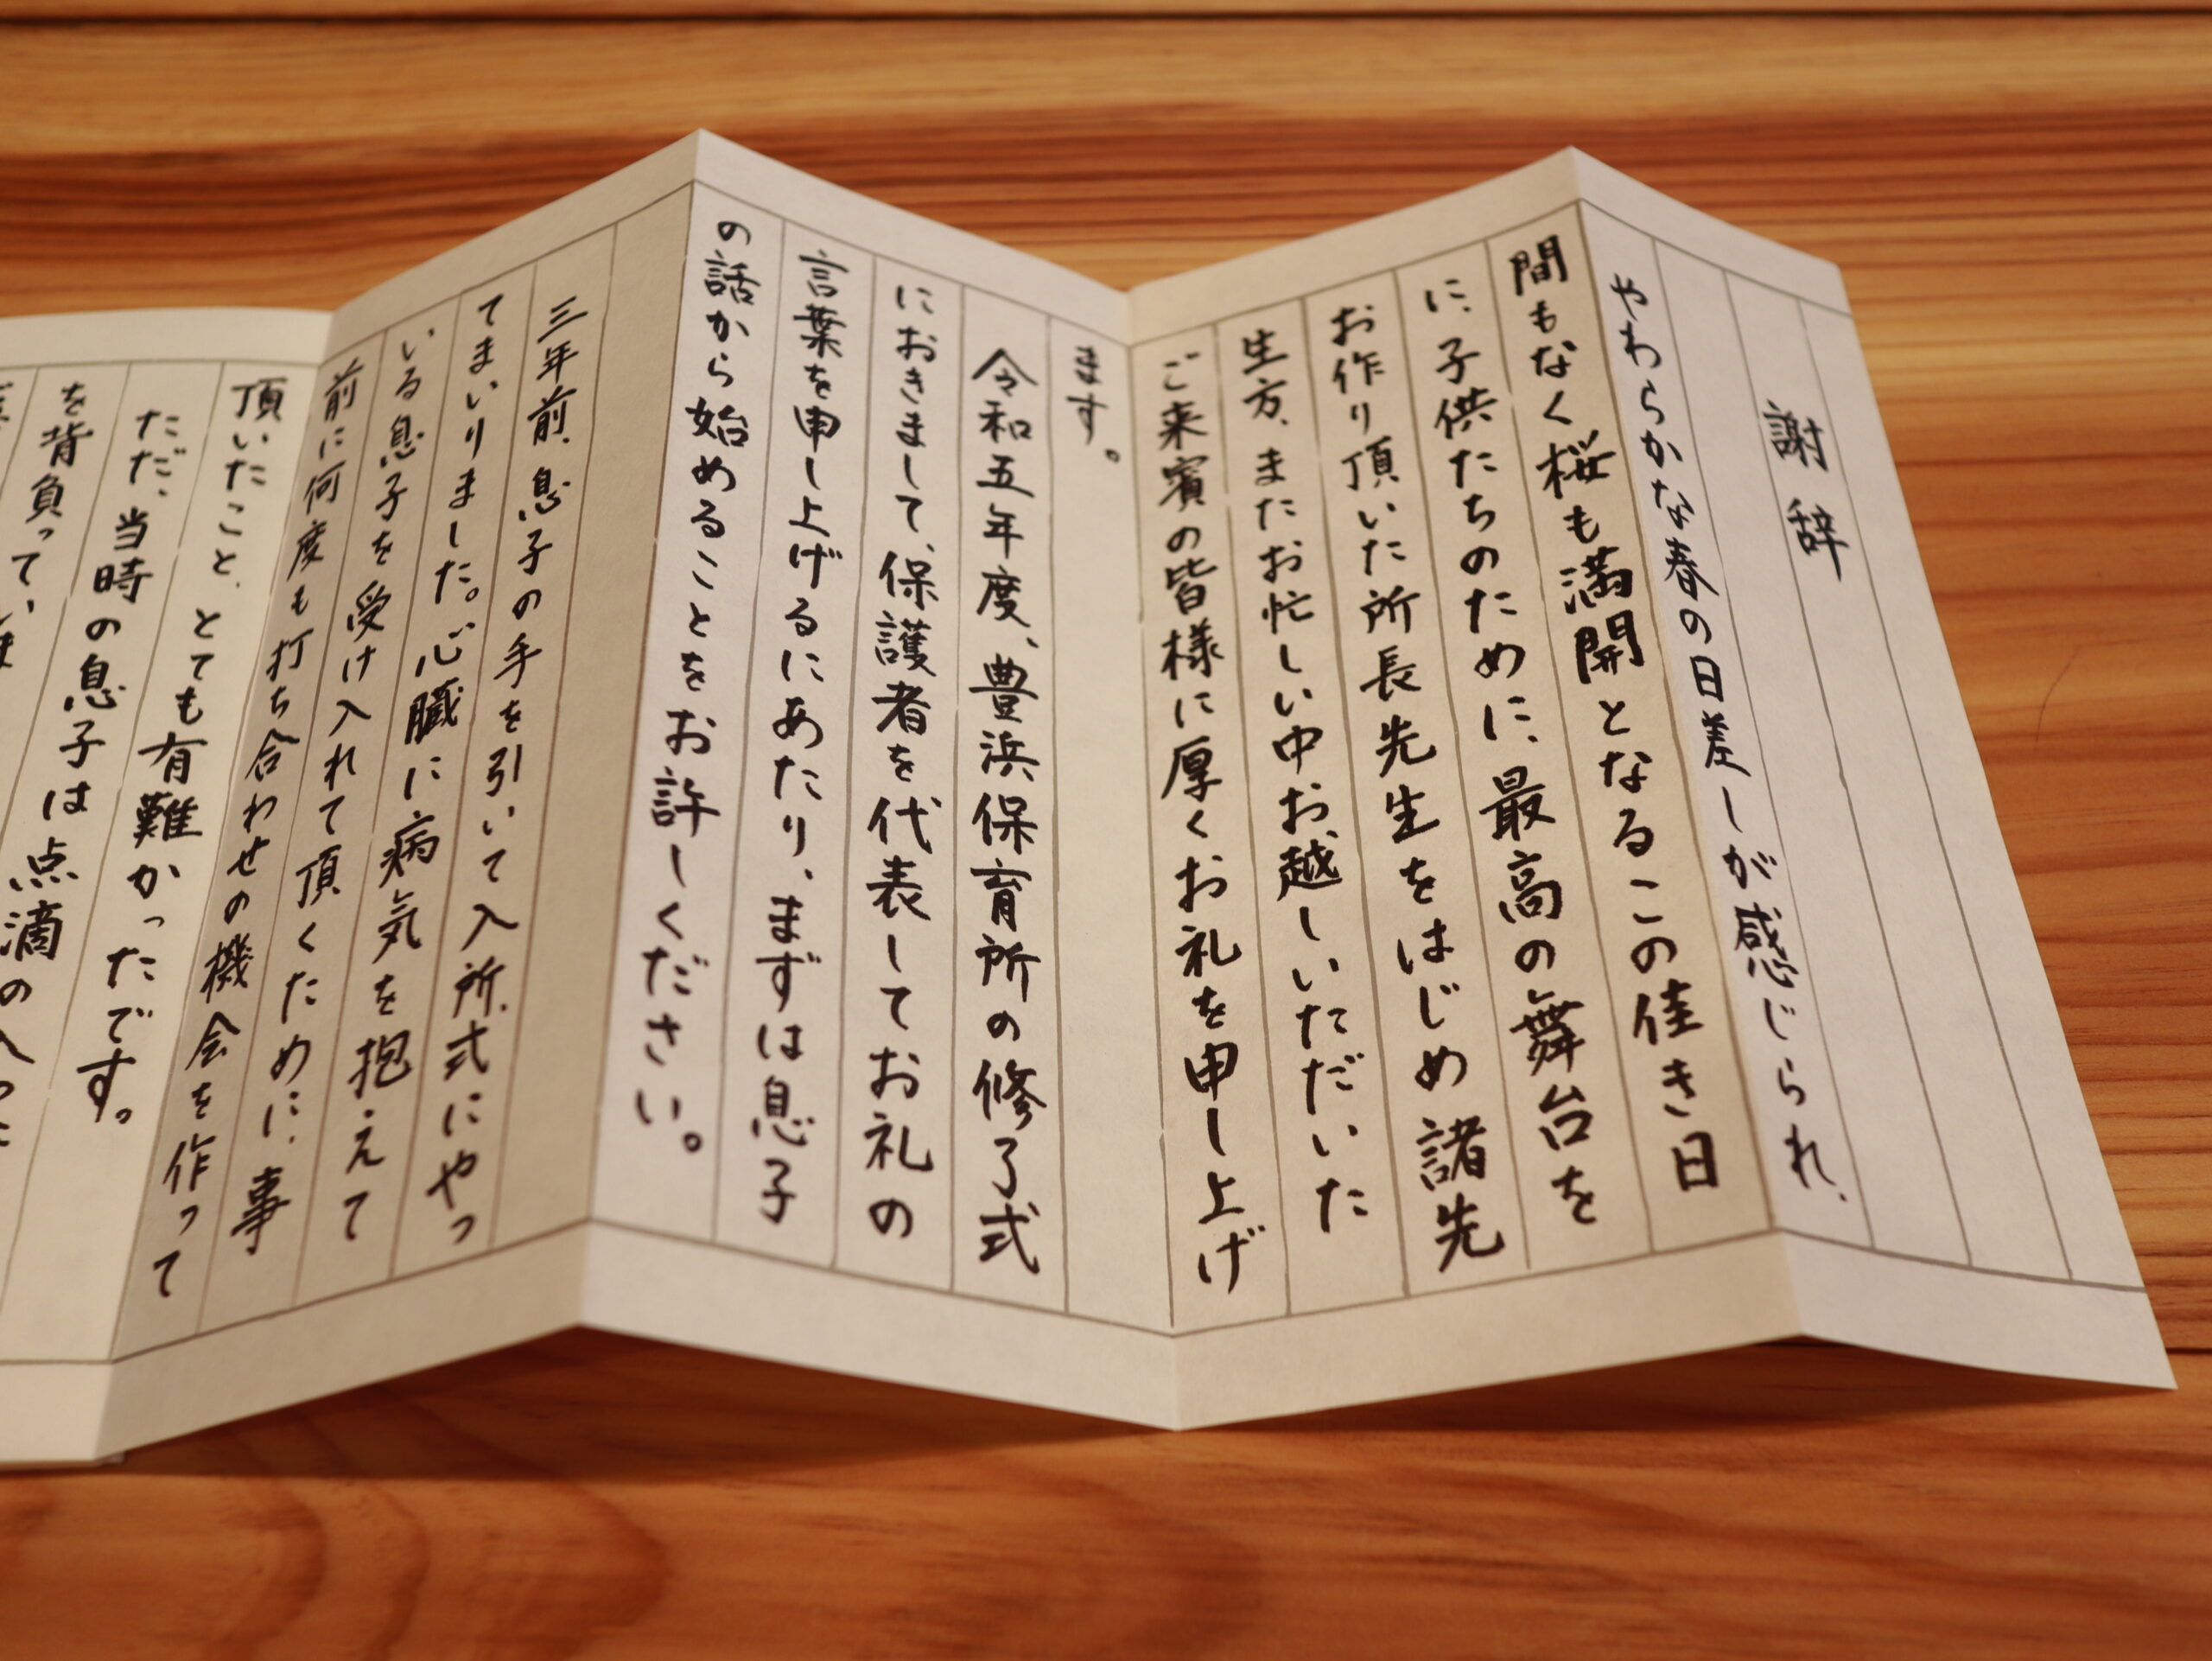 謝辞
やわらかな春の日差しが感じられ、
間もなく桜も満開となるこの佳き日
に、子供たちのために、最高の舞台を
お作り頂いた所長先生をはじめ諸先
生方、またお忙しい中お越しいただいた
ご来賓の皆様に厚くお礼を申し上げ
ます。
令和五年度、豊浜保育所の修了式
におきまして、保護者を代表してお礼の
言葉を申し上げるにあたり、まずは息子
の話から始めることをお許しください。
三年前、息子の手を引いて入所式にやっ
てまいりました。心臓に病気を抱えて
いる息子を受け入れて頂くために、事
前に何度も打ち合わせの機会を作って
頂いたこと、とても有難かったです。
ただ、当時の息子は点滴の入った
を背負ってい